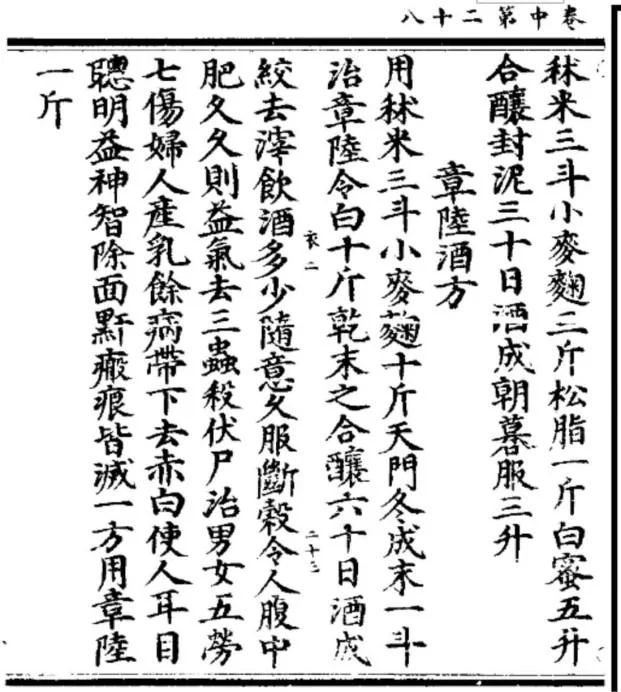 卷中第二十八
秫米三斗小麥麴三斤松脂一斤白蜜五升
合釀封泥三十日酒成朝暮服三升
章陸酒方
用秫米三斗小麥麴十斤天門冬成末一斗
治章陸令白十斤乾末之合釀六十日酒成
二
二十三
絞去滓飲酒多少隨意久服斷穀令人腹中
肥久久則益氣去三蟲殺伏尸治男女五勞
七傷婦人產乳餘病帶下去赤白使人耳目
聰明益神智除面䵟瘢痕皆滅一方用章陸
一斤